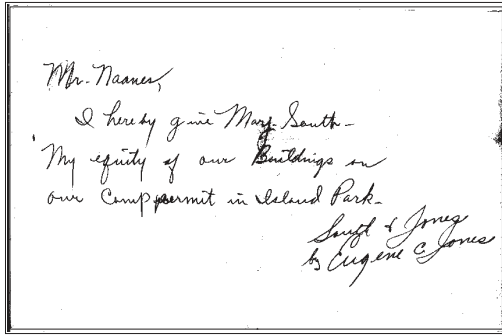 Mr. Naanes,
I hereby give Mary South -
My equity of our Buildings on
our Camp permit in Island Park -
South & Jones
by Eugene C Jones